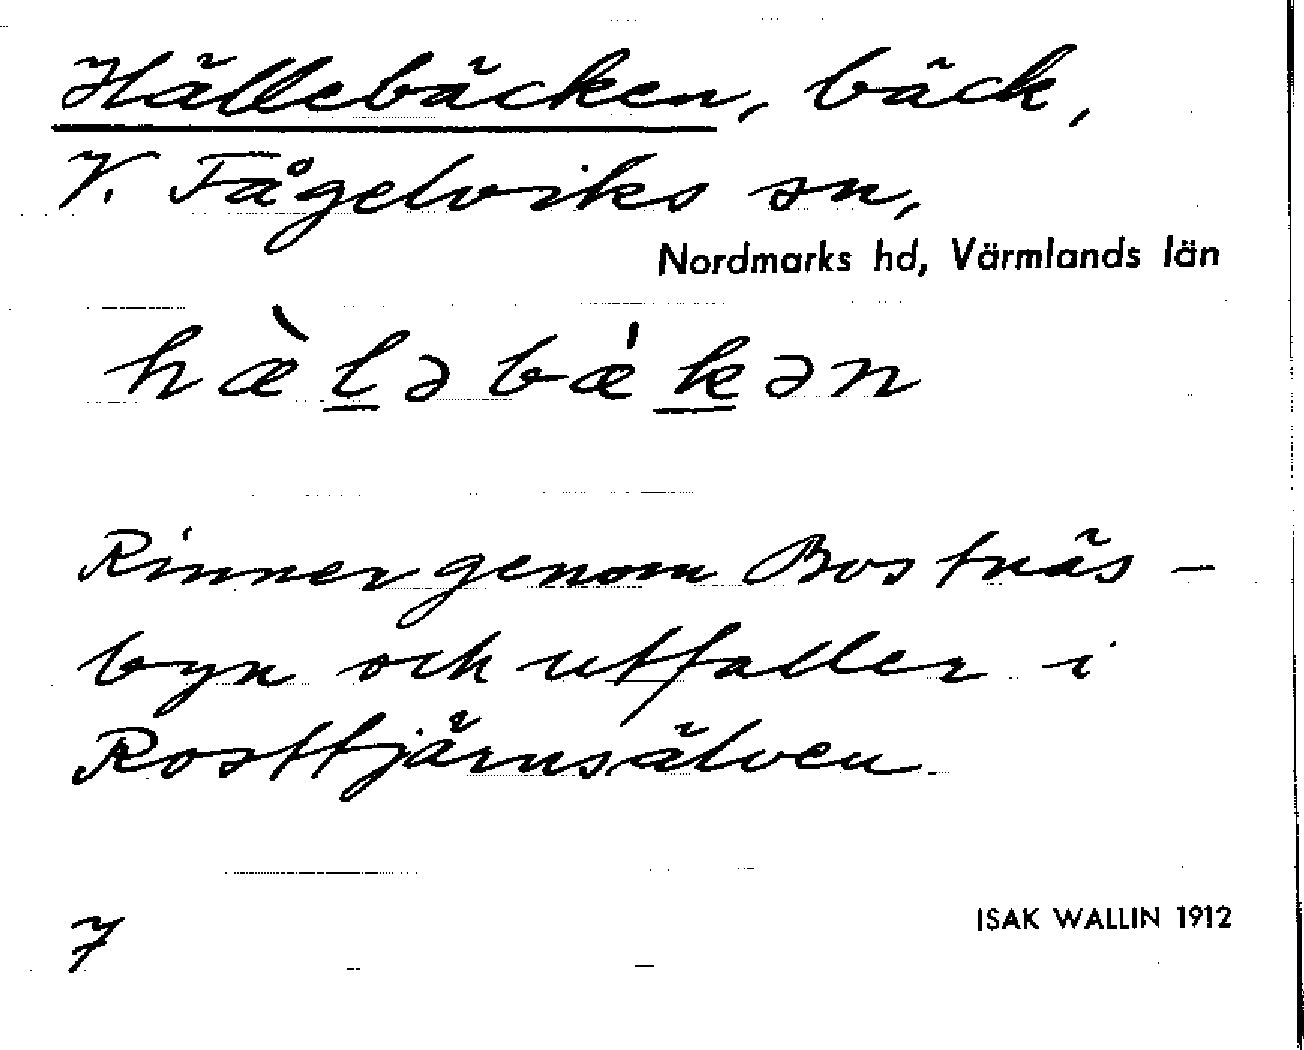 Hällebäcken, bäck,
V. Fågelviks sn,
Nordmarks hd, Värmlands län
hæ̀ləbǽkən
Rinner genom Bostnäs-
byn och utfaller i
Rosttjärnsälven.
7
ISAK WALLIN 1912